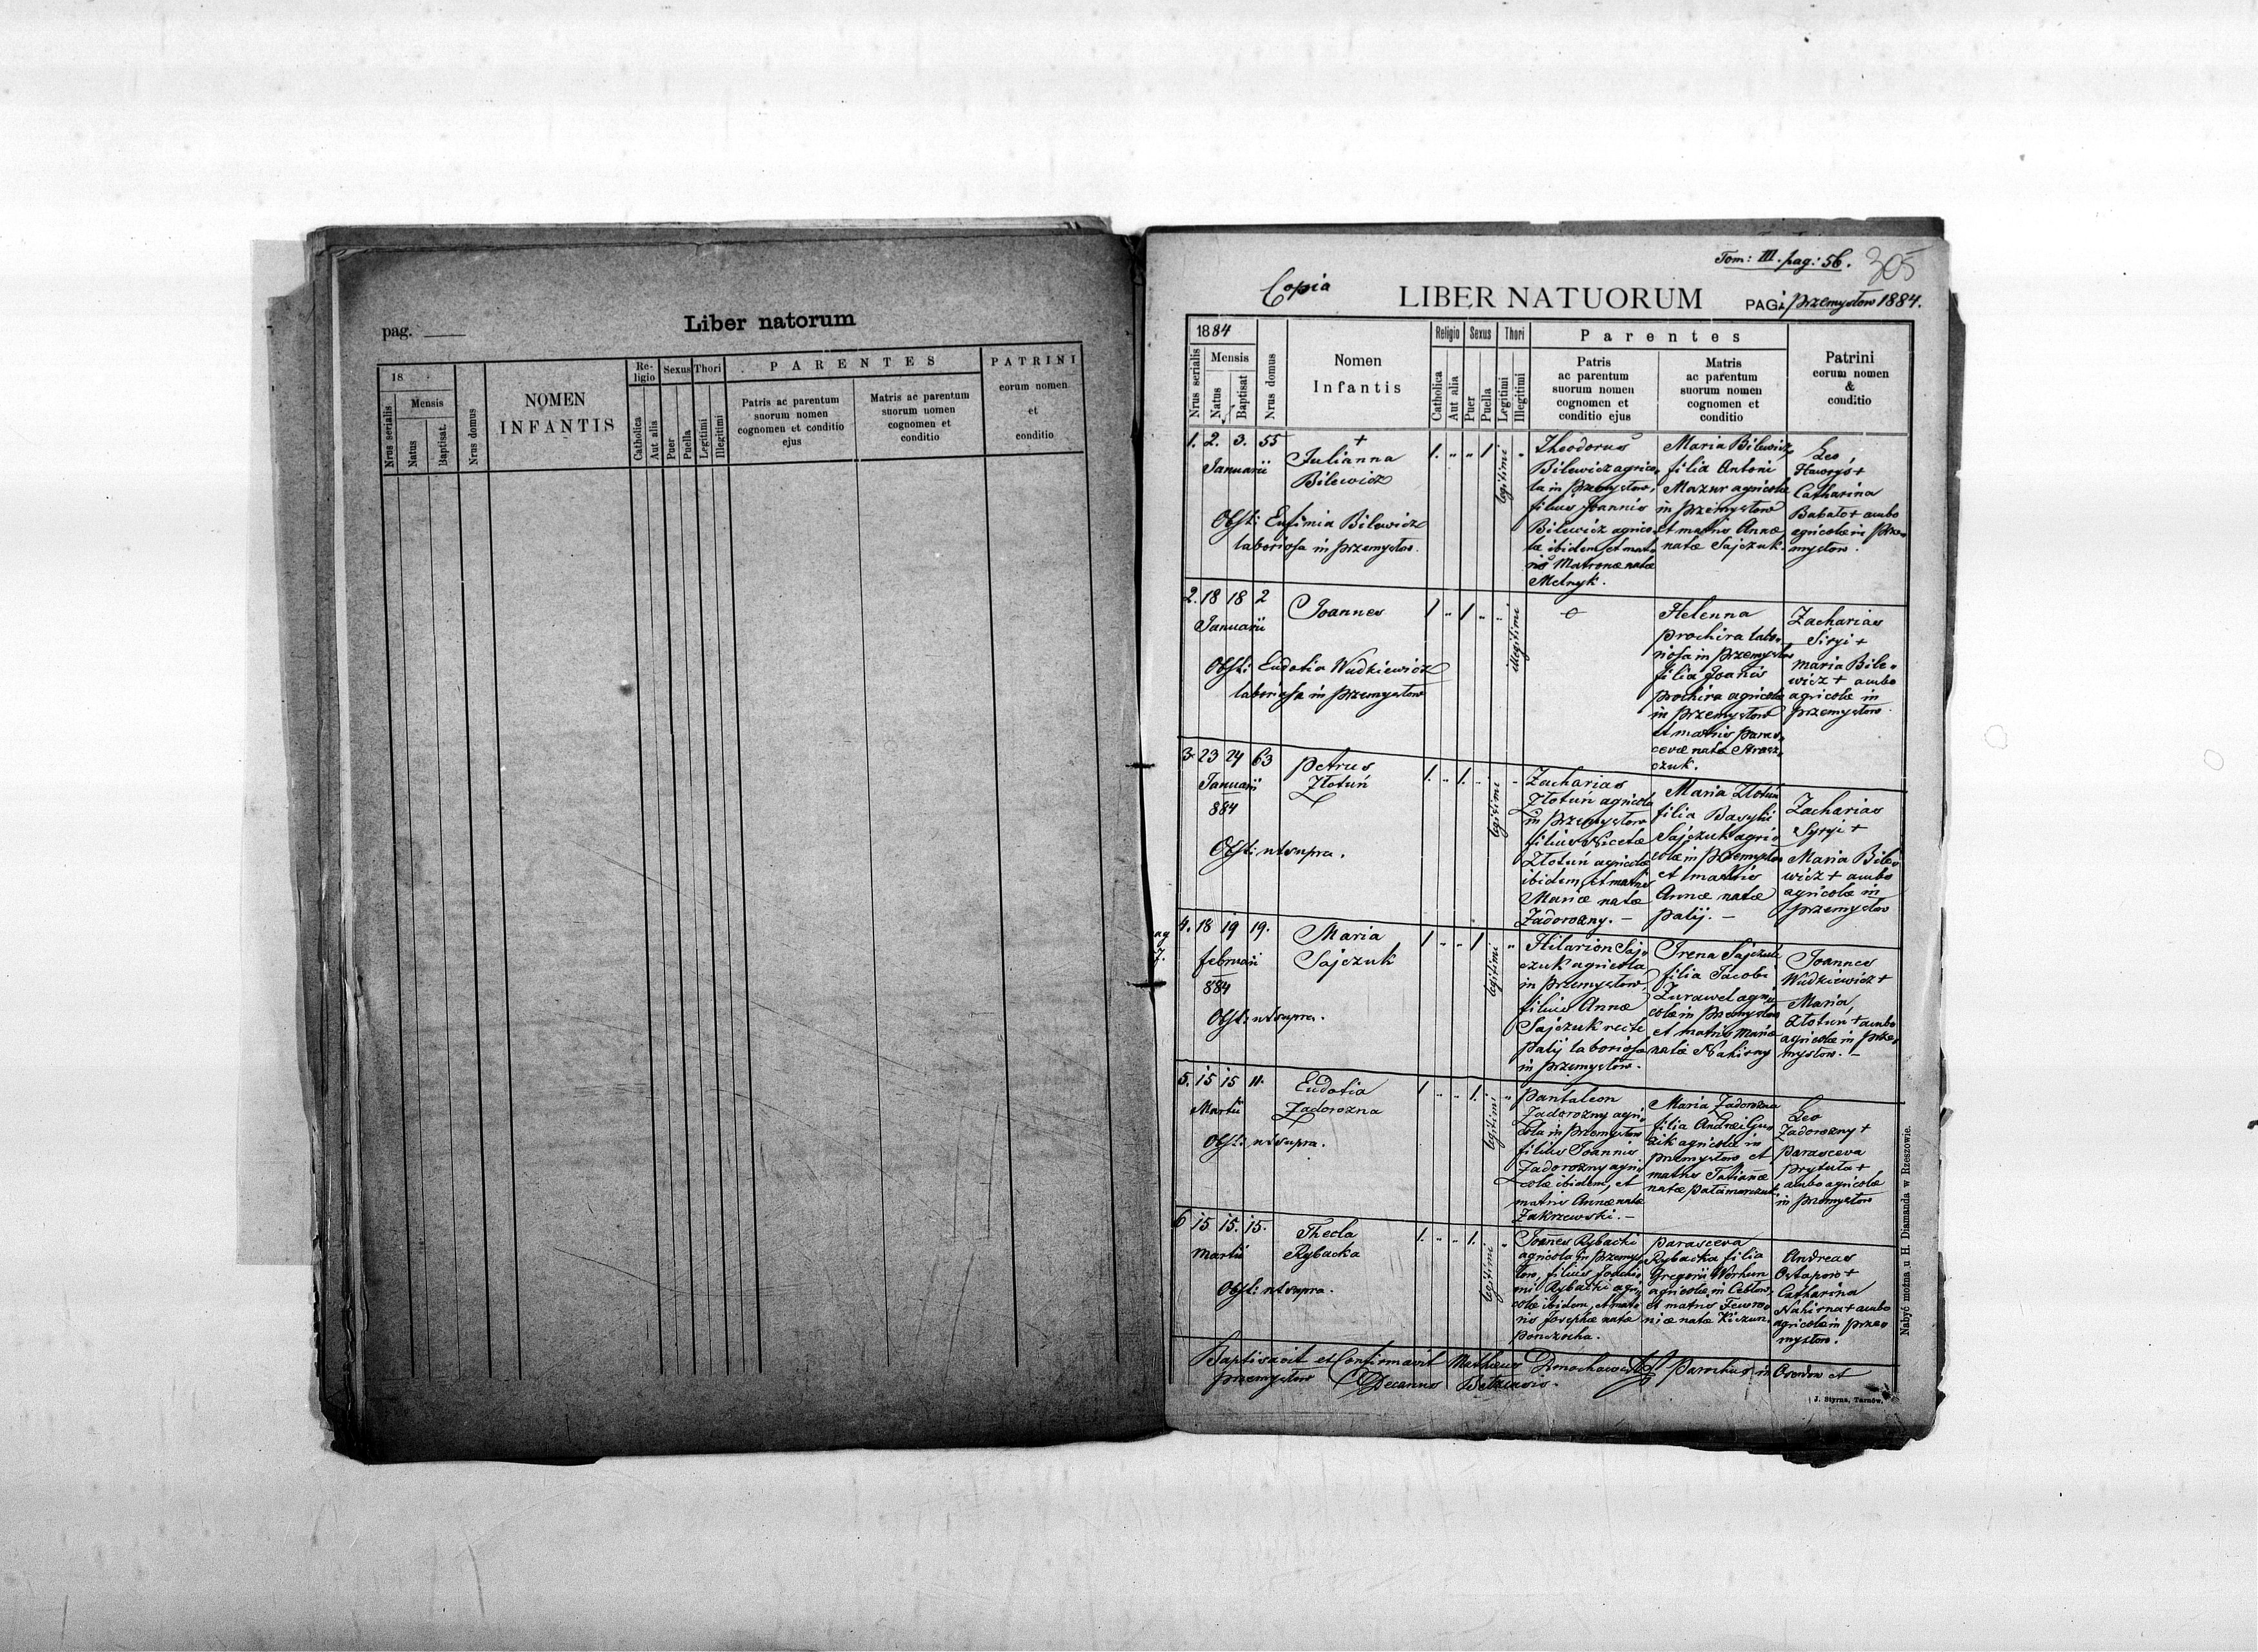 pag.
Liber natorum
18
Nrus serialis
Mensis
Natus
Baptisat.
Nrus domus
NOMEN
INFANTIS
Re-
ligio
Catholica
Aut alia
Sexus
Puer
Puella
Thori
Legitimi
Illegitimi
PARENTES
Patris ac parentum
suorum nomen
cognomen et conditio
ejus
Matris ac parentum
suorum nomen
cognomen et
conditio
PATRINI
eorum nomen
et
conditio
Tom: III. pag: 56.
305
Copia
LIBER NATUORUM
PAGi Przemysłow 1884.
1884
Nrus serialis
Mensis
Natus
Baptisat
Nrus domus
Nomen
Infantis
Religio
Catholica
Aut alia
Sexus
Puer
Puella
Thori
Legitimi
Illegitimi
Parentes
Patris
ac parentum
suorum nomen
cognomen et
conditio ejus
Matris
ac parentum
suorum nomen
cognomen et
conditio
Patrini
eorum nomen
&
conditio
1. 2. 3. 55
Januarii
+
Julianna
Bilewicz
Obst: Eufimia Bilewicz
laboriosa in Przemysłow.
1. " " 1
legitimi "
Theodorus
Bilewicz agrico-
la in Przemysłow,
filius Joannis
Bilewicz agrico-
lae ibidem, et mat-
ris Matronae natae
Melnyk.
Maria Bilewicz
filia Antoni
Mazur agricolae
in Przemysłow
et matris Annae
natae Sajczuk.
Leo
Hawryś +
Catharina
Babało + ambo
agricolae in Prze-
mysłow.
2. 18 18 2
Januarii
Joannes
Obst: Eudotia Wudkiewicz
laboriosa in Przemysłow
1 " 1 " "
illegitimi
Helenna
Prochira labo-
riosa in Przemysłow
filia Joanis
Prochira agricolae
in Przemysłow
et matris Paras-
cevae natae Strasz-
czuk.
Zacharias
Siryi +
Maria Bile-
wicz + ambo
agricolae in
Przemysłow.
3. 23 24 63
Januarii
884
Petrus
Złotuń
Obst: ut supra.
1. " 1. "
legitimi "
Zacharias
Złotuń agricola
in Przemysłow
filius Nicetae
Złotuń agricolae
ibidem, et matris
Mariae natae
Zadorozny. —
Maria Złotuń
filia Basylii
Sajczuk agri-
colae in Przemysłow
et matris
Annae natae
Palij. —
Zacharias
Syryi +
Maria Bile-
wicz + ambo
agricolae in
Przemysłow
4. 18 19 19.
februarii
884
Maria
Sajczuk
Obst: ut supra.
1 " " 1
legitimi "
Hilarion Saj-
czuk agricola
in Przemysłow,
filius Annae
Sajczuk recte
Palij laboriosae
in Przemysłow.
Irena Sajczuk
filia Jacobi
Zurawel agri-
colae in Przemysłow
et matris Mariae
natae Nahirny
Joannes
Wudkiewicz +
Maria
Złotuń + ambo
agricolae in Prze-
mysłow. —
5. 15 15 11.
Martii
Eudotia
Zadorozna
Obst: ut supra.
1 " " 1.
legitimi "
Pantaleon
Zadorozny agri-
cola in Przemysłow
filius Joannis
Zadorozny agri-
colae ibidem, et
matris Annae natae
Zakrzewski. —
Maria Zadorozna
filia Andrei Gu-
zik agricolae in
Przemysłow et
matris Tatianae
natae Pałamarczuk
Leo
Zadorozny +
Parasceva
Prytuła +
ambo agricolae
in Przemysłow
6 15 15. 15.
Martii
Thecla
Rybacka
Obst: ut supra.
1. " " 1.
legitimi "
Joannes Rybacki
agricola in Przemys-
łow, filius Joachi-
mi Rybacki agri-
colae ibidem, et mat-
ris Josephae natae
Ponczocha.
Parasceva
Rybacka filia
Gregorii Worhun
agricolae in Cebłow,
et matris Fewro-
niae natae Kiczun.
Andreas
Ostapow +
Catharina
Nahirna + ambo
agricolae in Prze-
mysłow.
Baptisavit et Confirmavit Matheus Parochus in Oserdow et
Przemysłow Decanus Bełzensis.
Nabyć można u H. Diamanda w Rzeszowie.
J. Styrna, Tarnów.